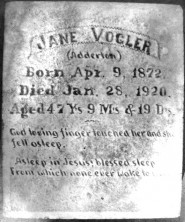 JANE VOGLER
(Adderton)
Born Apr. 9, 1872.
Died Jan. 28, 1920.
Aged 47 Ys 9 Ms & 19 Ds.
God loving finger touched her and she
fell asleep.
Asleep in Jesus; blessed sleep
From which none ever wake to